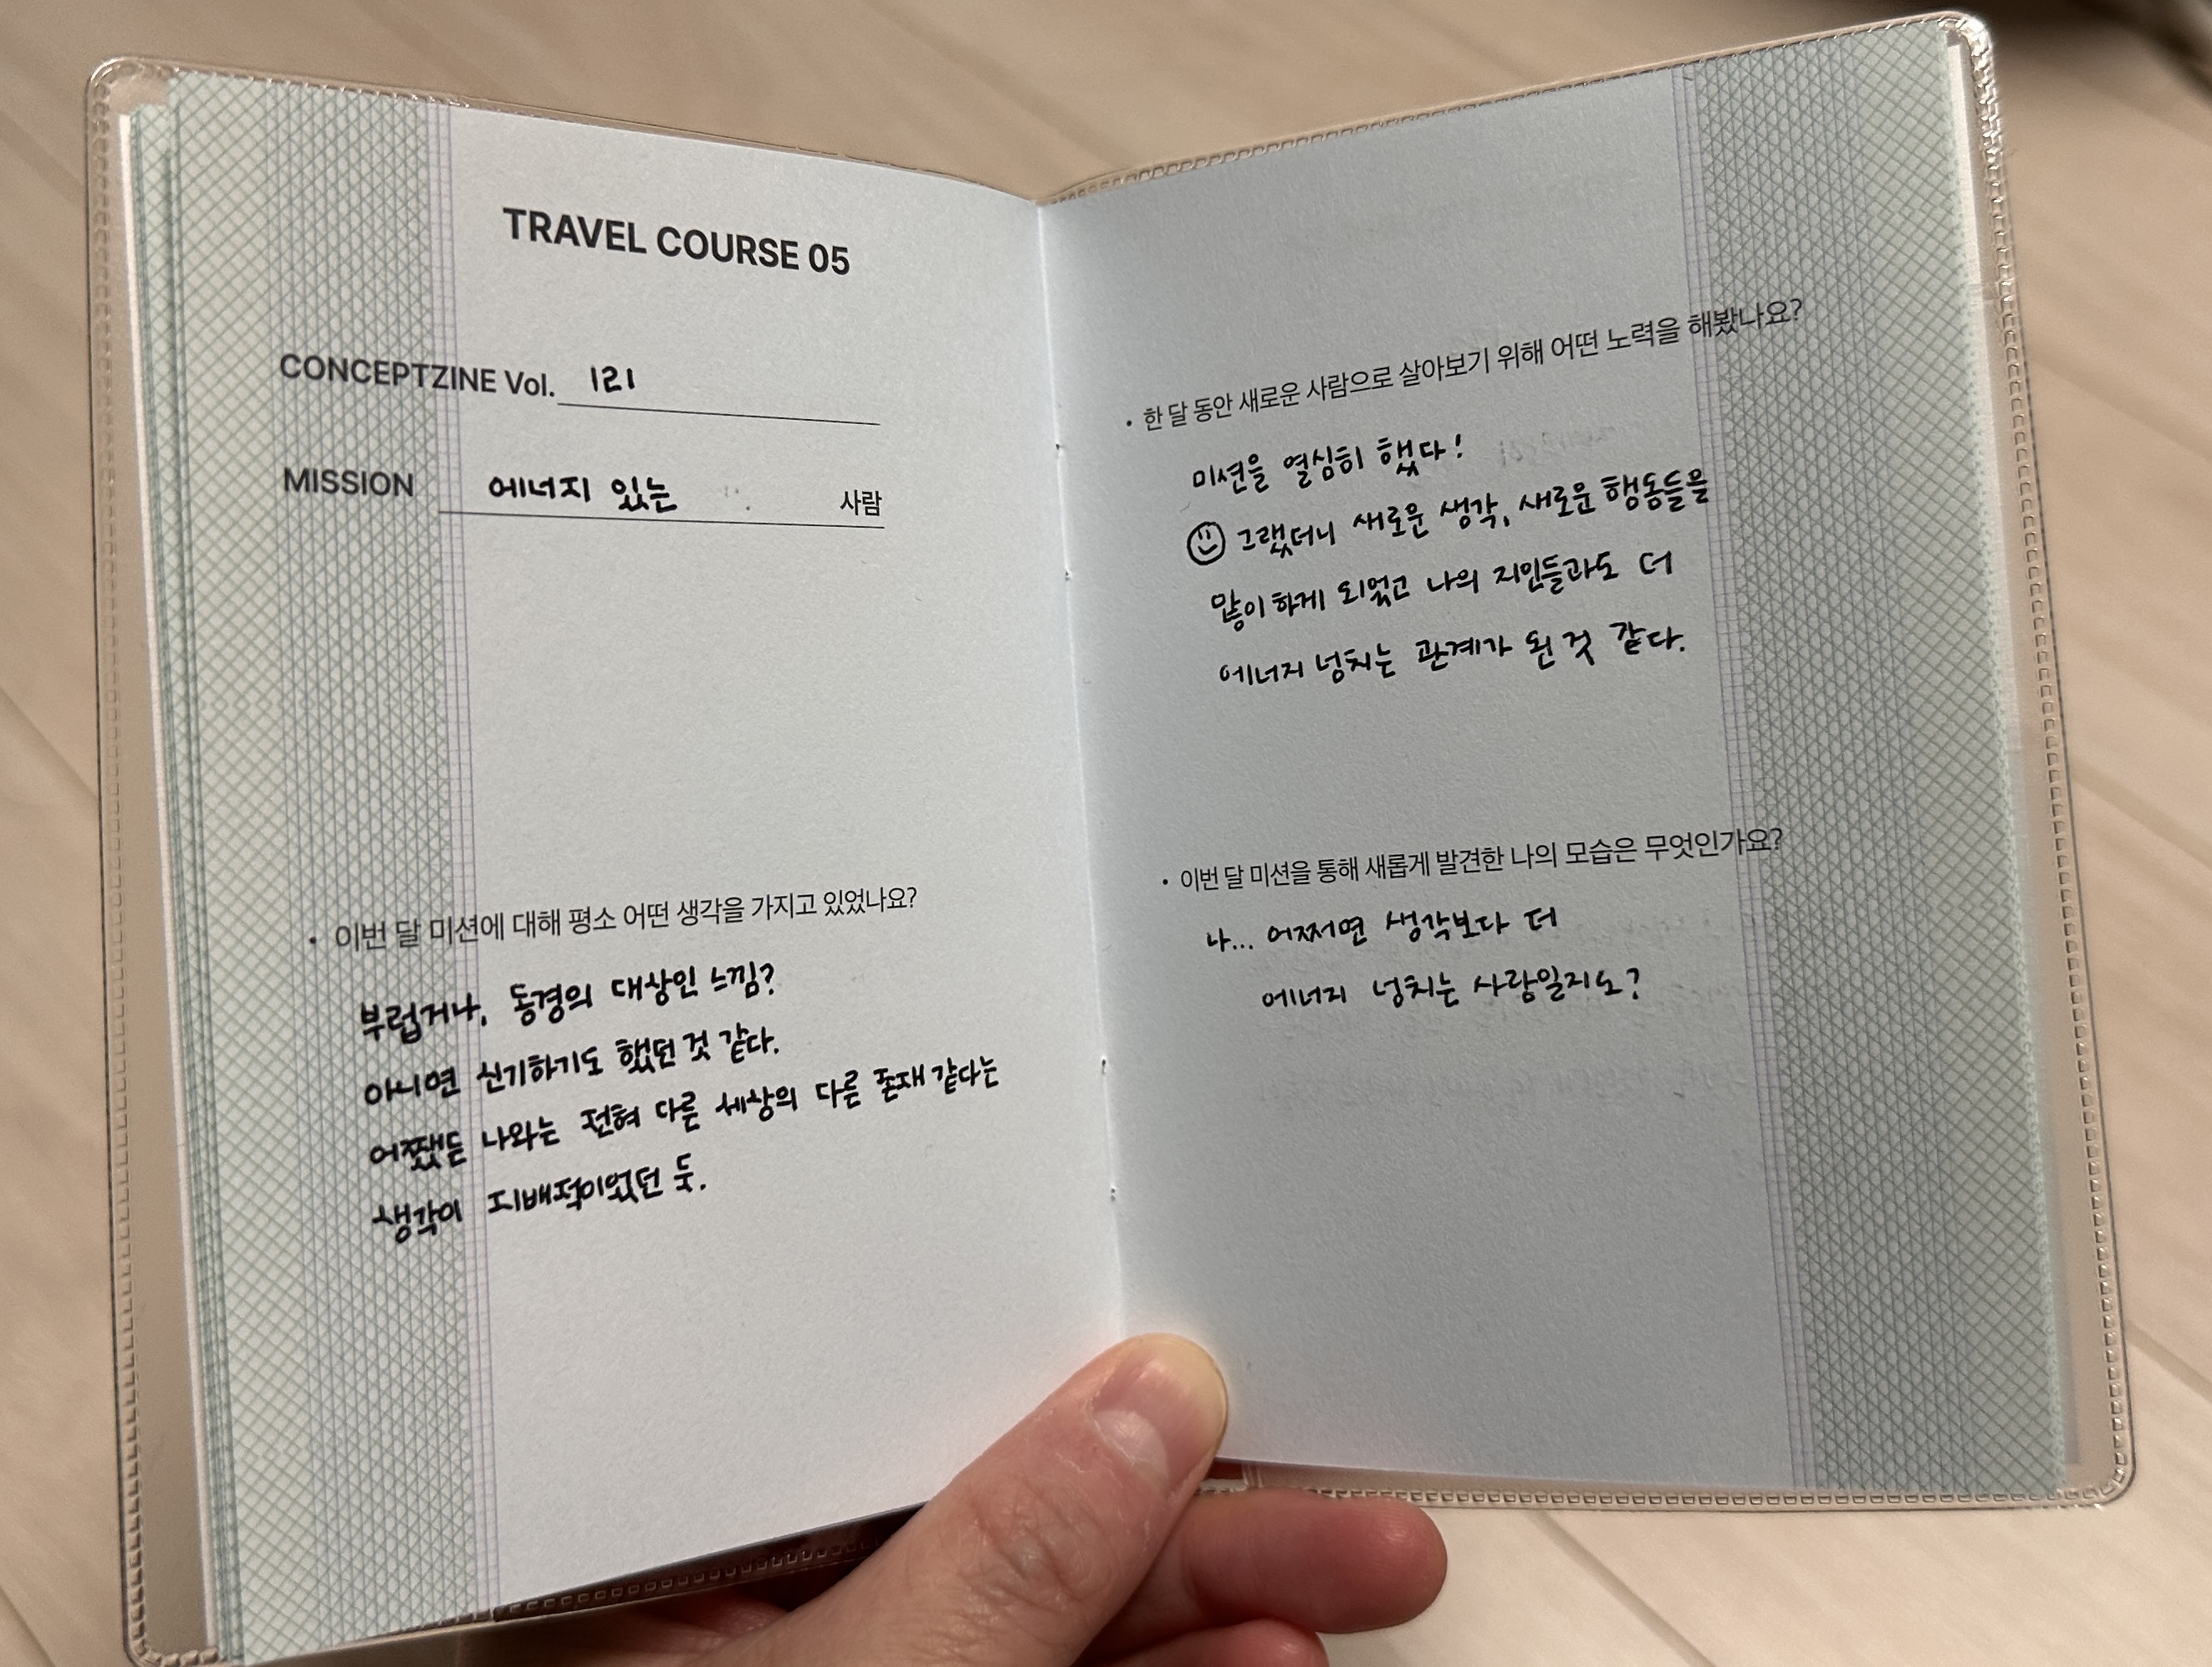 TRAVEL COURSE 05
CONCEPTZINE Vol. 121
MISSION 에너지 있는 사람
• 이번 달 미션에 대해 평소 어떤 생각을 가지고 있었나요?
부럽거나, 동경의 대상인 느낌?
아니면 신기하기도 했던 것 같다.
어쨌든 나와는 전혀 다른 세상의 다른 존재 같다는
생각이 지배적이었던 듯.
• 한 달 동안 새로운 사람으로 살아보기 위해 어떤 노력을 해봤나요?
미션을 열심히 했다!
그랬더니 새로운 생각, 새로운 행동들을
많이 하게 되었고 나의 지인들과도 더
에너지 넘치는 관계가 된 것 같다.
• 이번 달 미션을 통해 새롭게 발견한 나의 모습은 무엇인가요?
나... 어쩌면 생각보다 더
에너지 넘치는 사람일지도?